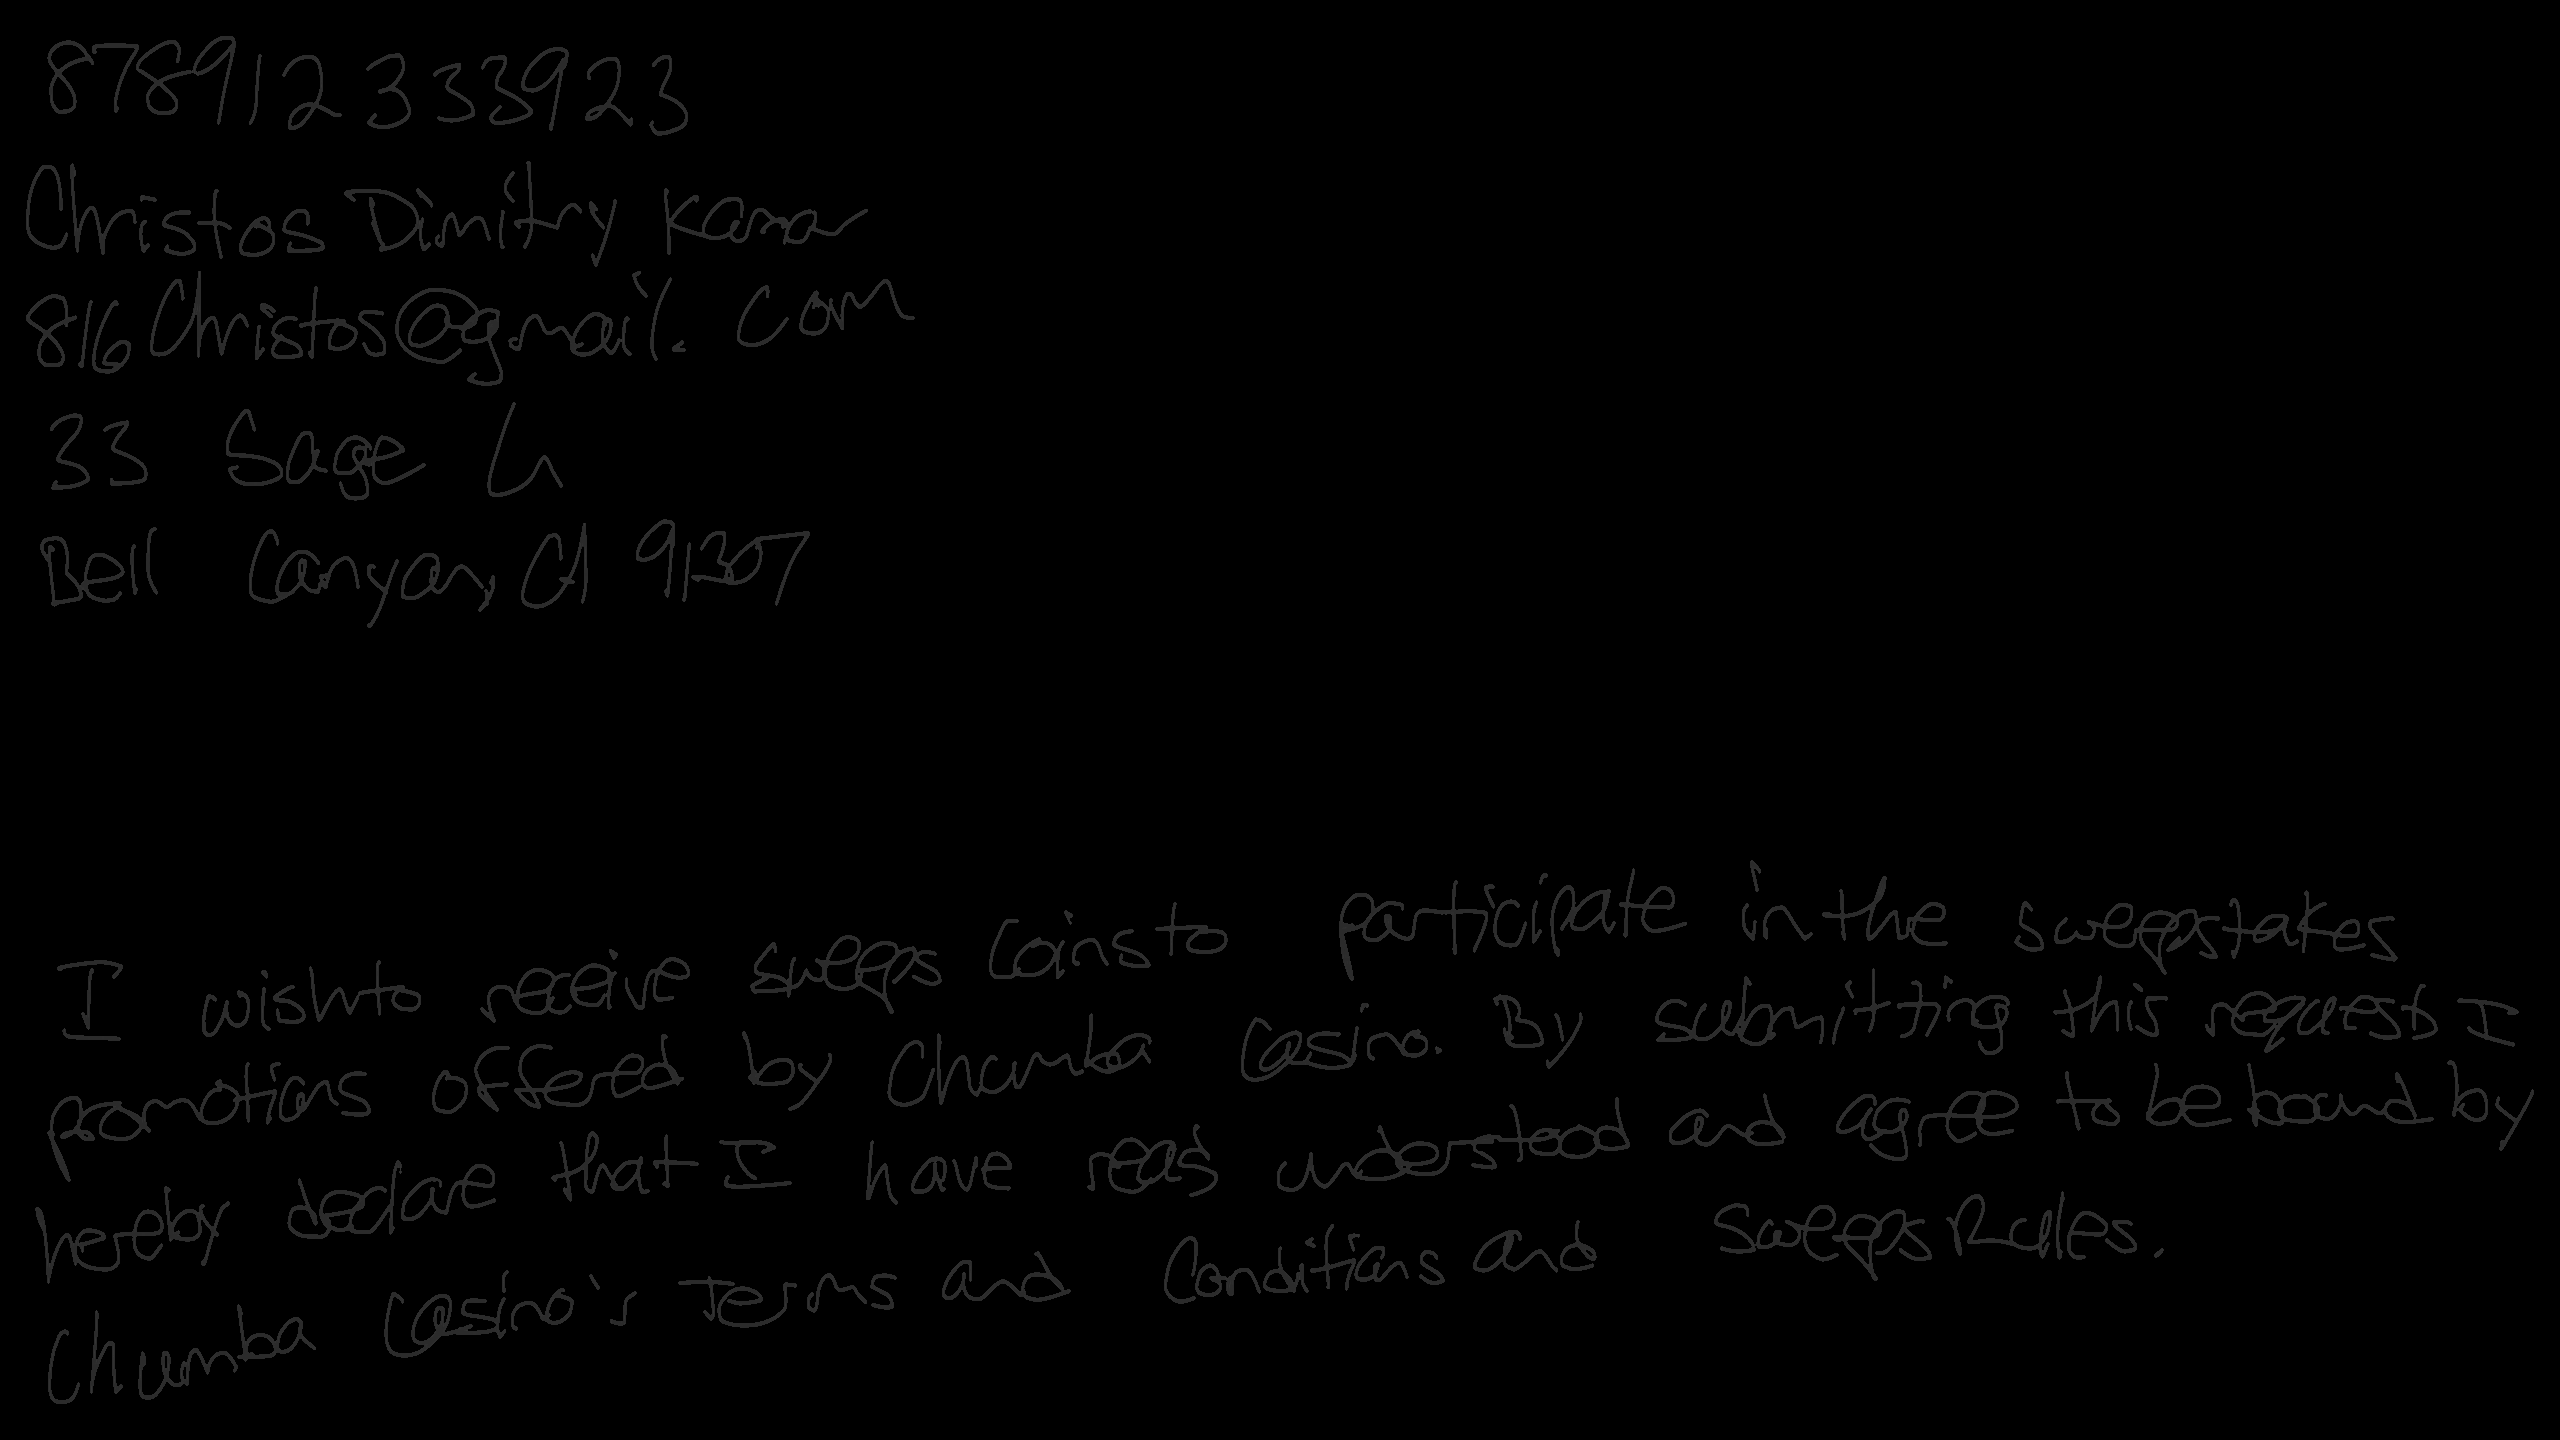 878912333923
Christos Dimitry Kamar
816Christos@gmail.com
33 Sage Ln
Bell Canyon, CA 91307
I wish to receive sweeps Coins to participate in the sweepstakes
promotions offered by Chumba Casino. By submitting this request I
hereby declare that I have read understood and agree to be bound by
Chumba Casino's Terms and Conditions and Sweeps Rules.